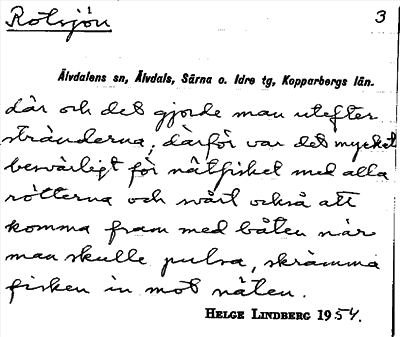 Rotsjön
3
Älvdalens sn, Älvdals, Särna o. Idre tg, Kopparbergs län.
där och det gjorde man utefter
stränderna, därför var det mycket
besvärligt för nätfisket med alla
rötterna och svårt också att
komma fram med båten när
man skulle pulsa, skrämma
fisken in mot näten.
HELGE LINDBERG 1954.